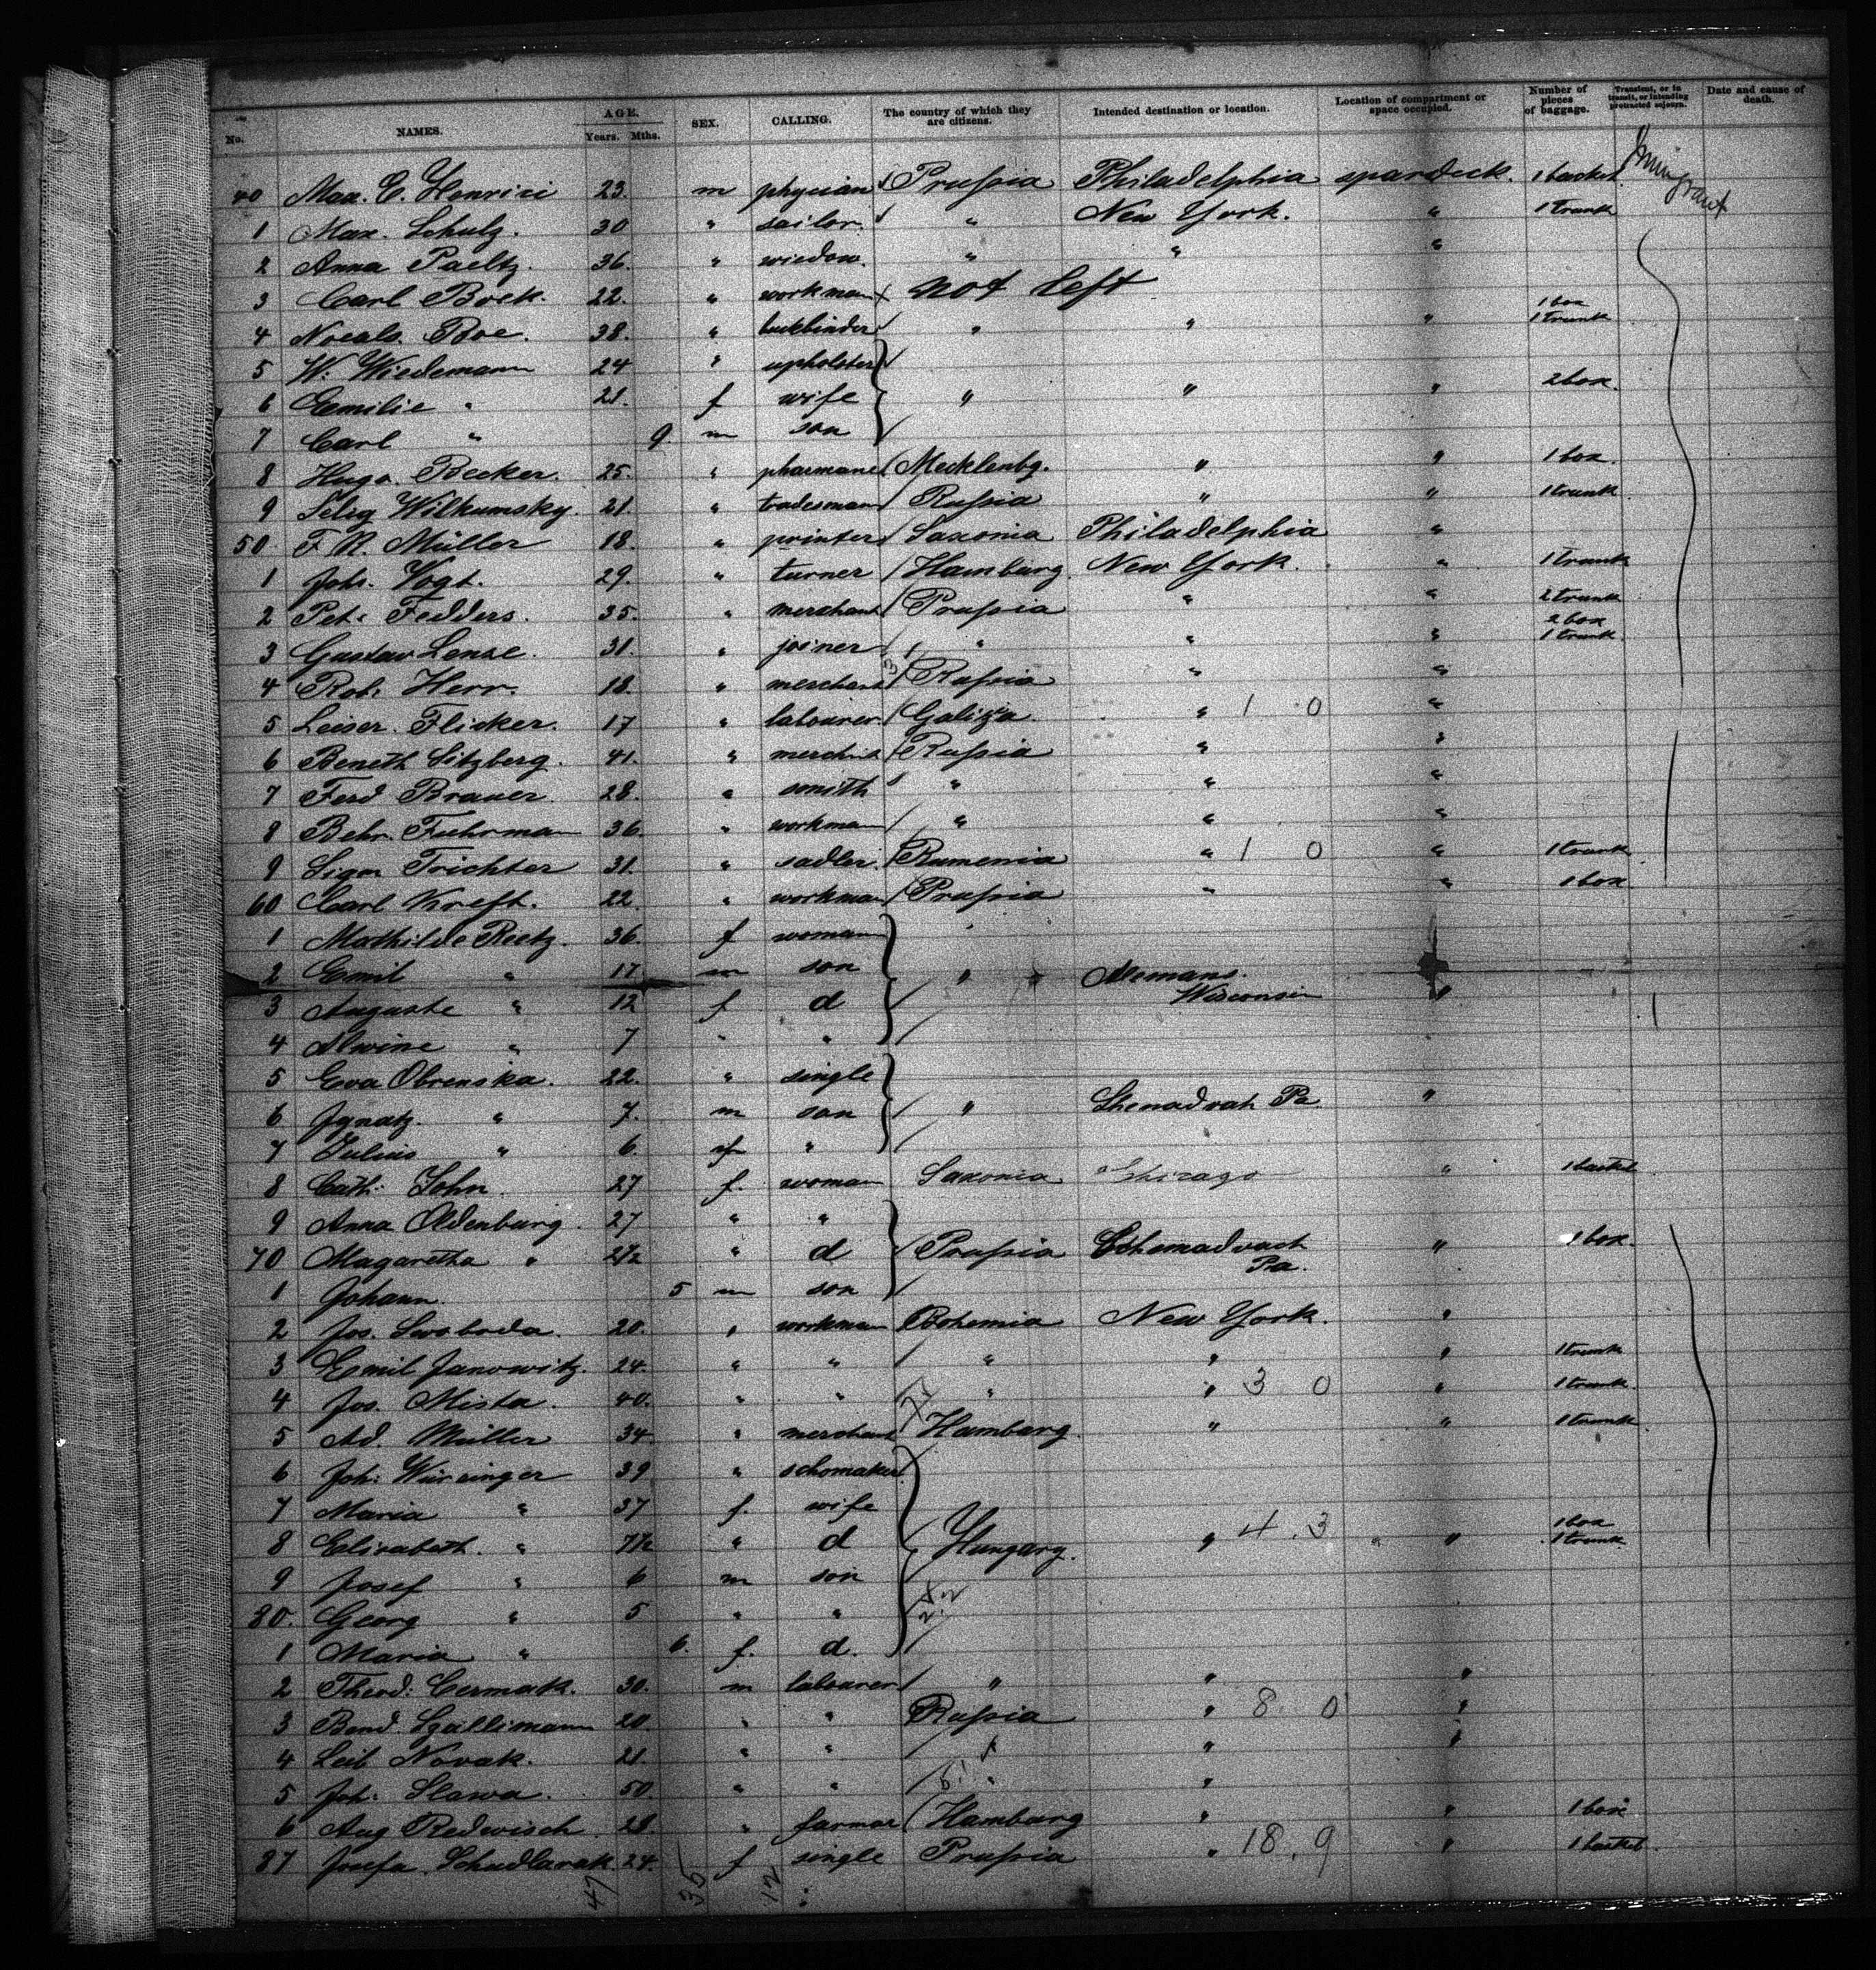 No. NAMES. AGE. Years. Mths. SEX. CALLING. The country of which they are citizens. Intended destination or location. Location of compartment or space occupied. Number of pieces of baggage. Transient, or in transit, or intending protracted sojourn. Date and cause of death.
40 Max. E. Henrici 23. m physician Prussia Philadelphia spardeck. 1 basket. Immigrant
1 Max. Schulz. 30 " sailor. " New York. " 1 trunk
2 Anna Paeltz. 36. " wiedow. " " "
3 Carl Boek. 22. " workman not left
4 Noeals. Boe. 38. " buckbinder " " " 1 box 1 trunk
5 W. Wiedemann 24 " upholster
6 Emilie " 21. f wife " " " 2 box.
7 Carl " 9. m son
8 Hugo. Becker. 25. " pharmanc Mecklenbg. " " 1 box.
9 Selig Wilkumsky. 21. " tradesman Russia " " 1 trunk.
50 F. N. Müller 18. " printer Saxonia Philadelphia "
1 Joh. Vogt. 29. " turner Hamburg. New York. " 1 trunk
2 Pet. Fedders. 35. " merchant Prussia " " 2 trunk
3 Gustav Lense. 31. " joiner " " " 2 box 1 trunk.
4 Rob. Herr. 18. " merchant Russia " "
5 Leiser. Flicker. 17 " labourer Galizia " 1 0 "
6 Beneth Sitzberg. 41. " merchnt Russia " "
7 Ferd Brauer. 28. " smith " " "
8 Behr. Fuhrman 36. " workman " " "
9 Sigm Trichter 31. " sadler. Rumenia " 1 0 " 1 trunk
60 Carl Kreft. 22. " workman Prussia " " 1 box.
1 Mathilde Reetz. 36. f woman
2 Emil " 17 m son " Alemans.
3 Auguste " 12 f d Wisconsin "
4 Alwine " 7 " "
5 Eva Obrenska. 22. " single
6 Jgnatz. " 7. m son " Shenadoah Pa. "
7 Julius " 6. "
8 Cath: John. 27 f. woman Saxonia. Chicago " 1 basket.
9 Anna Oldenburg. 27 " "
70 Magaretha " 2½ " d Prussia Schenadvach Pa. " 1 box.
1 Johann. 5 m son
2 Jos. Swoboda. 20. " workman Bohemia New York. "
3 Emil Janowitz. 24. " " " " " 1 trunk
4 Jos. Mista. 40. " " " " 3 0 " 1 trunk.
5 Ad. Müller 34. " merchant Hamburg. " " 1 trunk
6 Joh: Wiirsinger 39 " schomaker
7 Maria " 37 f. wife
8 Elisabeth. " 7½ " d Hungary. " 4.3 " 1 box 1 trunk
9 Josef " 6 m son
80. Georg " 5 " "
1 Maria " 6. f. d.
2 Theod: Cermak. 30. m labourer " " "
3 Bend. Szallimann 20. " " Russia " 8. 0 "
4 Leib Novak. 21. " " " "
5 Joh: Slawa. 50. " " " "
6 Aug Redwisch. 28. " farmer Hamburg " " 1 box
87 Josefa. Schudlarak. 24. f single Prussia " 18.9 " 1 basket.
47 35 12